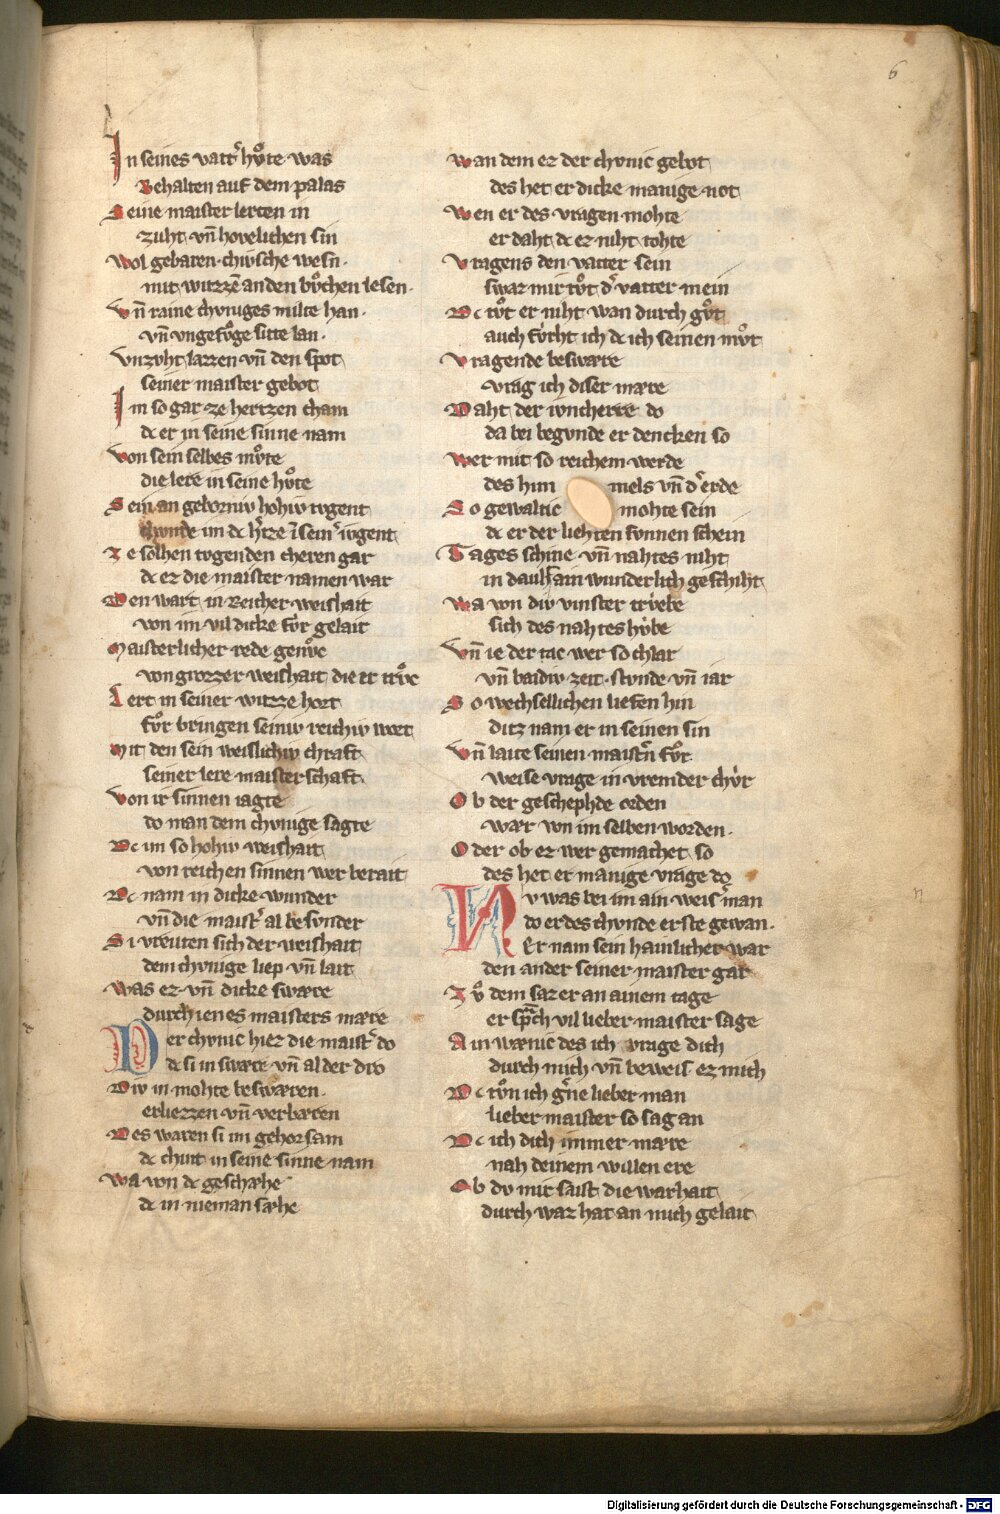 6
In seines vatt͛ hv̊te was
Behalten auf dem palas
Seine maister lerten in
zuht vn̄ hovelichen sin
Wol gebaren · chivsche wesn̄ ·
mit witzzē an den bv̊chen lesen ·
Vn̄ raine chvniges milte han ·
vn̄ vngefv̊ge sitte lan ·
Vnzvht lazzen vn̄ den spot
seiner maister gebot
Im so gar ze hertzen cham
dc er in seine sinne nam
Von sein selbes mv̊te
die lere in seine hv̊te
Sein an geborniv hohiv tvgent
chvnde im dc h͛tze ī sein͛ ivgent
Ze solhen tvgenden cheren gar
dc ez die maister namen war
Den wart in Reicher weishait
von im vil dicke fv̊r gelait
Maisterlicher rede genv̊c
von grozzer weishait die er trv̊c
Lert in seiner witzze hort
fv̊r bringen seiniv reichiv wort
Mit den sein weislichiv chraft
seiner lere maisterschaft
Von ir sinnen iagte
do man dem chvnige sagte
Dc im so hohiv weishait
von reichen sinnen wer berait
Dc nam in dicke wunder
vn̄ die maist͛ al besvnder
Si vreuten sich der weishait
dem chvnige liep vn̄ lait
Was ez vn̄ dicke swære
durch ienes maisters mære
Der chvnic hiez die maist͛ do
dc si in swære vn̄ al der dro
Div in mohte beswæren ·
erliezzen vn̄ verbæren
Des waren si im gehorsam
dc chint in seine sinne nam
Wa von dc geschæhe
dc in nieman sæhe
Wan dem ez der chvnic gebot
des het er dicke manige not
Wen er des vragen mohte
er daht dc ez niht tohte
Vragens den vatter sein
swaz mir tv̊t d͛ vatter mein
Dc tv̊t er niht wan durch gv̊t
auch fv̊rht ich dc ich seinen mv̊t
Vragende beswære
vrag ich diser mære
Daht der ivncherre do
da bei begvnde er dencken so
Wer mit so reichem werde
des him mels vn̄ d͛ erde
So gewaltic mohte sein
dc er der liehten svnnen schein
Tages schine vn̄ nahtes niht
in dauht ain wunderlich geschiht
Wa von div vinster trvebe
sich des nahtes hv̊be
Vn̄ ie der tac wer so chlar
vn̄ baidiv zeit · stvnde vn̄ iar
So wechsellichen liefen hin
ditz nam er in seinen sin
Vn̄ laite seinen maist͛n fv̊r ·
weise vrage in vremder chv̊r
Ob der geschephde orden
wær von im selben worden ·
Oder ob ez wer gemachet so
des het er manige vrage do
Nv was bei im ain weis͛ man
do er des chvnde erste gewan ·
Er nam sein haimlicher war
den ander seiner maister gar
Zv̊ dem saz er an ainem tage
er sp͛ch vil lieber maister sage
Ain wænic des ich vrage dich
durch mich vn̄ beweis ez mich
Dc tv̊n ich g͛ne lieber man
lieber maister so sag an
Dc ich dich immer mære
nah deinem willen ere
Ob dv mir saist die warhait
durch waz hat an mich gelait
Digitalisierung gefördert durch die Deutsche Forschungsgemeinschaft - DFG